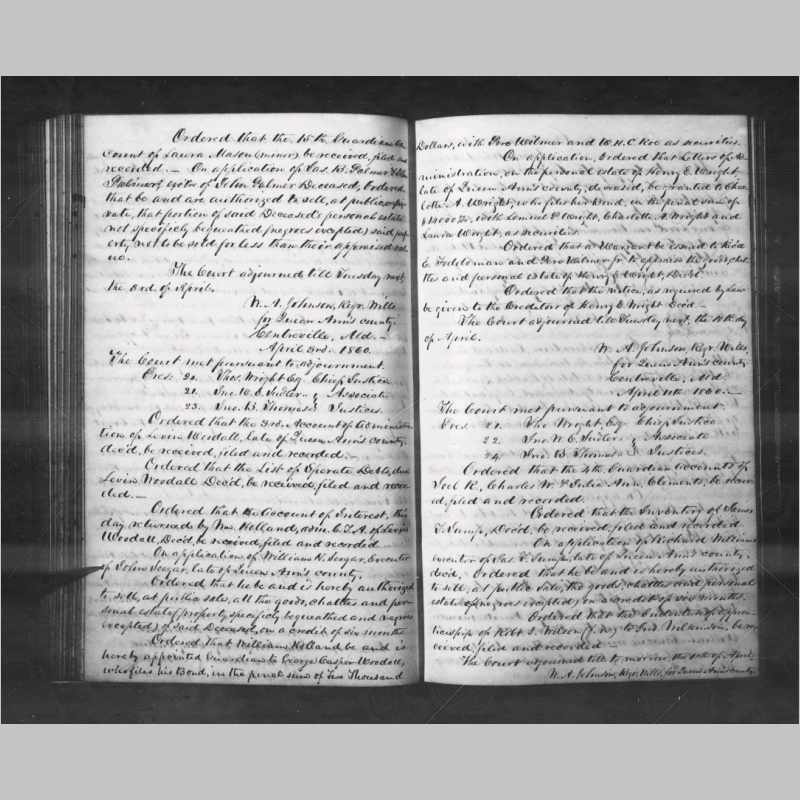 Ordered that the 15th Guardian Ac
count of Laura Mason (minor) be received, filed and
recorded. — On application of Jas. K. Palmer &
Palmer, Exotrs of John Palmer Deceased, Ordered
that be and are authorized to sell, at public or pri
vate, that portion of said Deceased's personal estate
not specificly bequeathed (negroes excepted) said prop
erty not to be sold for less than their appraised val
ue.
The Court adjourned till Tuesday next
the 3rd of April.
W. A. Johnson, Regr. Wills
for Queen Ann's county.
Centreville, Md. —
April 3rd. 1860.
The Court met pursuant to adjournment.
Pres: 20. Thos. Wright Esq Chief Justice
21. Jno. W. E. Sudler & Associate
23. Jno. B. Thomas Justices.
Ordered that the 3rd. Account of Administra
tion of Levin Woodall, late of Queen Ann's county,
dec'd, be received, filed and recorded. —
Ordered that the List of Sperate Debts, due
Levin Woodall Dec'd, be received, filed and recor
ded. —
Ordered that the Account of Interest, this
day returned by Wm. Kelland, adm. C.T.A. of Levin
Woodall, Dec'd, be received, filed and recorded.
On application of William K. Seegar, Executor
of John Seegar, late of Queen Ann's county,
Ordered that he be and is hereby authorized
to sell, at public sale, all the goods, chattles and per
sonal estate (property specificly bequeathed and negroes
excepted) of said Deceased, on a credit of six months
Ordered that William Kelland be and is
hereby appointed Guardian to George Casper Woodall,
who files his Bond, in the penal sum of Ten Thousand
Dollars, with Pere Wilmer and W. H. C. Roe as securities.
On application, ordered that Letters of Ad
ministration, on the personal estate of Henry E. Wright
late of Queen Ann's county, deceased, be granted to Char
lotte A. Wright, who files her Bond, in the penal sum of
$1000 00, with Lemuel P. Wright, Charlotte A. Wright and
Laura Wright, as securities.
Ordered that a Warrant be issued to Rich'd
E. and Pere Wilmer Jr. to appraise the goods, chat
tles and personal estate of Henry E. Wright, Dec'd.
Ordered that the notice, as required by Law
be given to the Creditors of Henry E. Wright Dec'd —
The Court adjourned till Tuesday next, the 10th day
of April.
W. A. Johnson, Regr. Wills,
for Queen Ann's county
Centreville, Md.
April 10th 1860. —
The Court met pursuant to adjournment.
Pres: 21. Tho. Wright, Esq. Chief Justice
22. Jno W. E. Sudler & Associate
24. Jno. B. Thomas Justices.
Ordered that the 4th Guardian accounts of
Joel K., Charles W. & Julia Ann, Clements, be receiv
ed, filed and recorded.
Ordered that the Inventory of James
T. Sump, Dec'd, be received, filed and recorded.
On application of Richard William
executor of Jas. T. Sump, late of Queen Ann's county,
dec'd, Ordered that he be and is hereby authorized
to sell, at public sale, the goods, chattles and personal
estate (negroes excepted) on a credit of six months.
Ordered that the Indenture of appren
ticeship of Robt S. Wilson to Wilkinson, be re
ceived, filed and recorded.
The Court adjourned till to morrow, the 11th of April,
W. A. Johnson, Regr. Wills, for Queen Ann's county